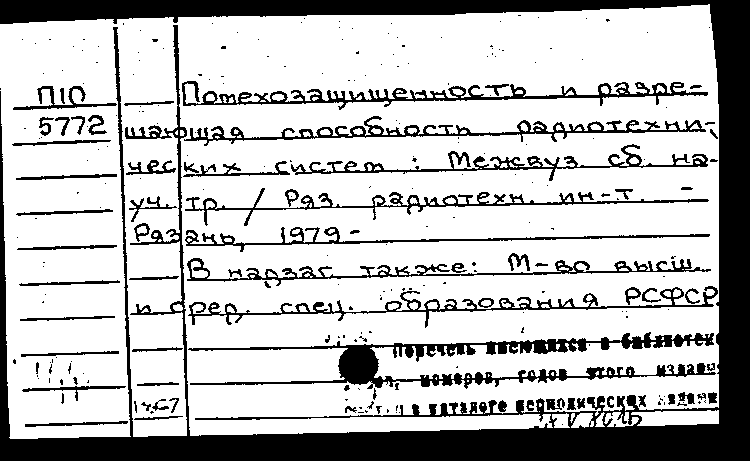 П10
5772
Потехозащищенность и разре-
шающая способность радиотехни-
ческих систем : Межвуз сб. на-
уч. тр. / Ряз. радиотехн. ин-т. -
Рязань, 1979 -
В надзаг. также: М-во высш.
и сред. спец. образования РСФСР.
Перечень имеющихся в библиотеке
номеров, годов этого издания
в каталоге периодических издани